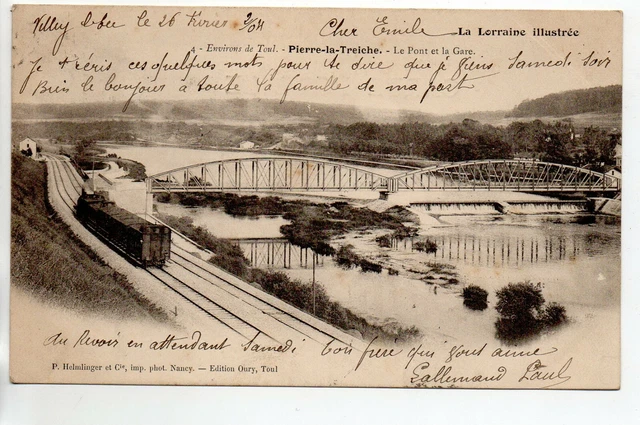 Villey le Sec le 26 Février 2/04
Cher Emile
La Lorraine illustrée
4 - Environs de Toul. - Pierre-la-Treiche. - Le Pont et la Gare.
Je t'écris ces quelques mots pour te dire que je viens Samedi Soir
Bien le bonjour à toute la famille de ma part
au Revoir en attendant Samedi
ton frère que vous aime
Gallemand Paul
P. Helmlinger et Cie, imp. phot. Nancy. - Edition Oury, Toul